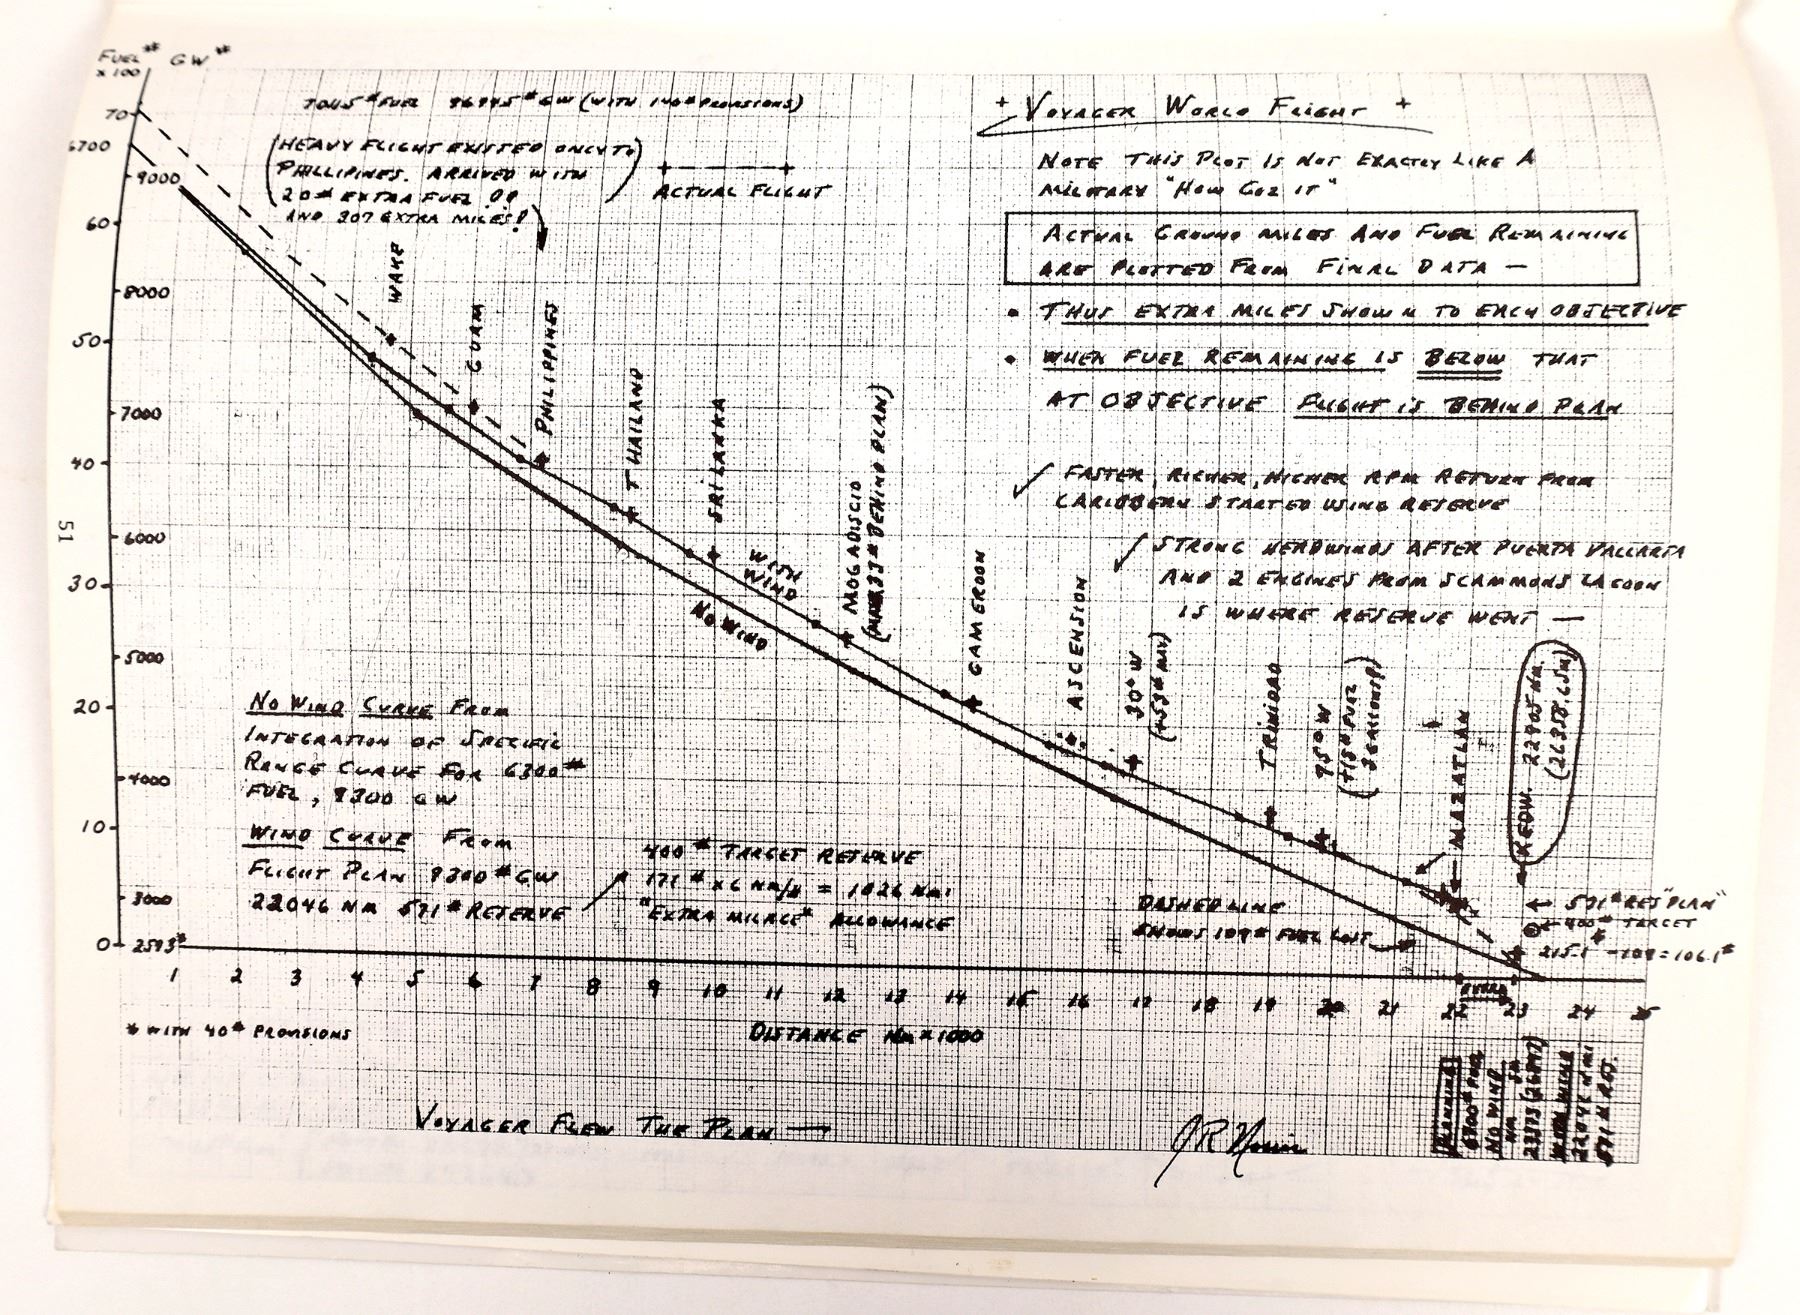 FUEL # GW #
x 100
7045 # FUEL (WITH 140# PROVISIONS)
70
6700
9000
60
8000
50
7000
40
6000
30
5000
20
4000
10
3000
0
2593#
(HEAVY FLIGHT EXISTED ONLY TO
PHILLIPINES. ARRIVED WITH
20# EXTRA FUEL !!
AND 207 EXTRA MILES!)
ACTUAL FLIGHT
+ VOYAGER WORLD FLIGHT +
NOTE THIS PLOT IS NOT EXACTLY LIKE A
MILITARY "HOW GOZ IT"
ACTUAL GROUND MILES AND FUEL REMAINING
ARE PLOTTED FROM FINAL DATA —
• THUS EXTRA MILES SHOWN TO EACH OBJECTIVE
• WHEN FUEL REMAINING IS BELOW THAT
AT OBJECTIVE FLIGHT IS BEHIND PLAN
✓ FASTER, RICHER, HIGHER RPM RETURN FROM
CARIBBEAN STARTED USING RESERVE
✓ STRONG HEADWINDS AFTER PUERTA VALLARTA
AND 2 ENGINES FROM SCAMMONS LAGOON
IS WHERE RESERVE WENT —
WAKE
GUAM
PHILIPPINES
THAILAND
SRI LANKA
MOGADISCIO
(33# BEHIND PLAN)
CAMEROON
ASCENSION
30° W
TRINIDAD
95° W
(+18# FUEL
3 GALLONS!)
MAZATLAN
KEDW. 22905 NM.
(26358.6 SM)
WITH
WIND
NO WIND
NO WIND CURVE FROM
INTEGRATION OF SPECIFIC
RANGE CURVE FOR 6300#
FUEL, 9300 GW
WIND CURVE FROM
FLIGHT PLAN 9300# GW
22046 NM 571# RESERVE
400# TARGET RESERVE
171# x 6 NM/# = 1026 NMI
"EXTRA MILAGE" ALLOWANCE
DASHED LINE
SHOWS 109# FUEL LOST
← 571# RES "PLAN"
← 400# TARGET
215.1# - 109 = 106.1#
1 2 3 4 5 6 7 8 9 10 11 12 13 14 15 16 17 18 19 20 21 22 23 24 25
* WITH 40# PROVISIONS
DISTANCE NM x 1000
PLANNING
NO WIND
NM SM
WITH WIND
22046 NMI
571# RES.
VOYAGER FLEW THE PLAN →
JR Norris
51